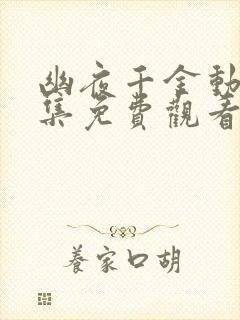 幽夜千金動
集免費觀看
養家口胡